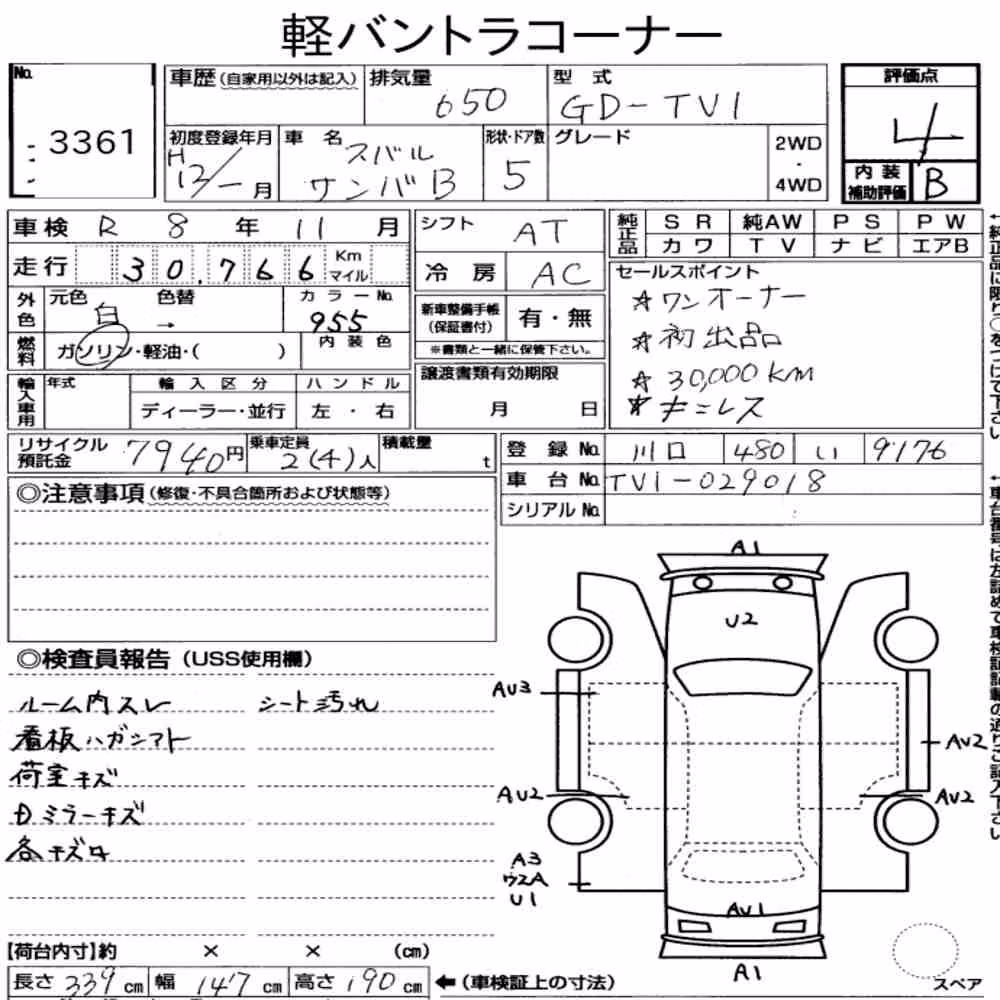 軽バントラコーナー
No. 3361
車歴 (自家用以外は記入)
排気量 650
型式 GD-TV1
評価点 4
初度登録年月 H12/一月
車名 スバル サンバB
形状・ドア数 5
グレード
2WD・4WD
内装補助評価 B
車検 R 8年 11月
走行 30,766 Km マイル
外色 元色 白 色替 →
カラーNo. 955
燃料 ガソリン・軽油・( )
内装色
輸入車用 年式 輸入区分 ハンドル
ディーラー・並行 左・右
シフト AT
冷房 AC
新車整備手帳(保証書付) 有・無
※書類と一緒に保管下さい。
譲渡書類有効期限
月 日
純正品 SR 純AW PS PW
カワ TV ナビ エアB
セールスポイント
☆ワンオーナー
☆初出品
☆30,000KM
☆キニレス
リサイクル預託金 7940円
乗車定員 2(4)人
積載量 t
登録No. 川口 480 い 9176
車台No. TV1-029018
シリアルNo.
◎注意事項(修復・不具合箇所および状態等)
◎検査員報告(USS使用欄)
ルーム内スレ シート汚れ
看板ハガシアト
荷室キズ
Dミラーキズ
各キズ
A1
U2
AU3
AU2
AU2
AU2
A3
ウエA
U1
AU1
A1
スペア
【荷台内寸】約 × × (cm)
長さ 339cm 幅 147cm 高さ 190cm ←(車検証上の寸法)
↑純正品に限り○をつけて下さい
↑車台番号は左詰めで車検証記載の通りご記入下さい